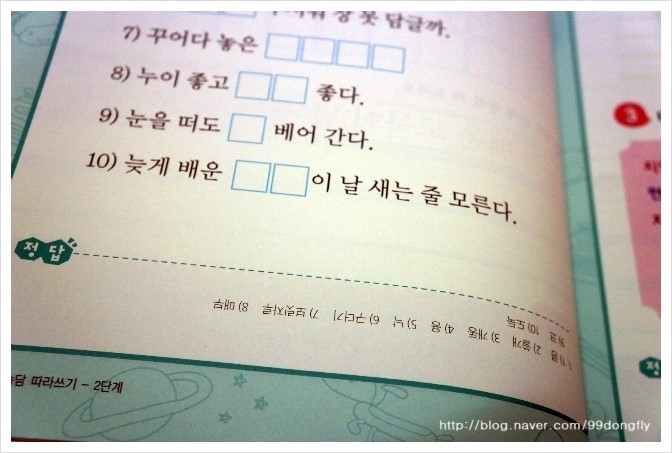 장 못 담글까.
7) 꾸어다 놓은 □□□□
8) 누이 좋고 □□ 좋다.
9) 눈을 떠도 □ 베어 간다.
10) 늦게 배운 □□이 날 새는 줄 모른다.
정답
2) 쓸개 3) 개똥 4) 용 5) 낫 6) 구더기 7) 보릿자루 8) 매부
9) 코 10) 도둑
따라쓰기 - 2단계
3
http://blog.naver.com/99dongfly